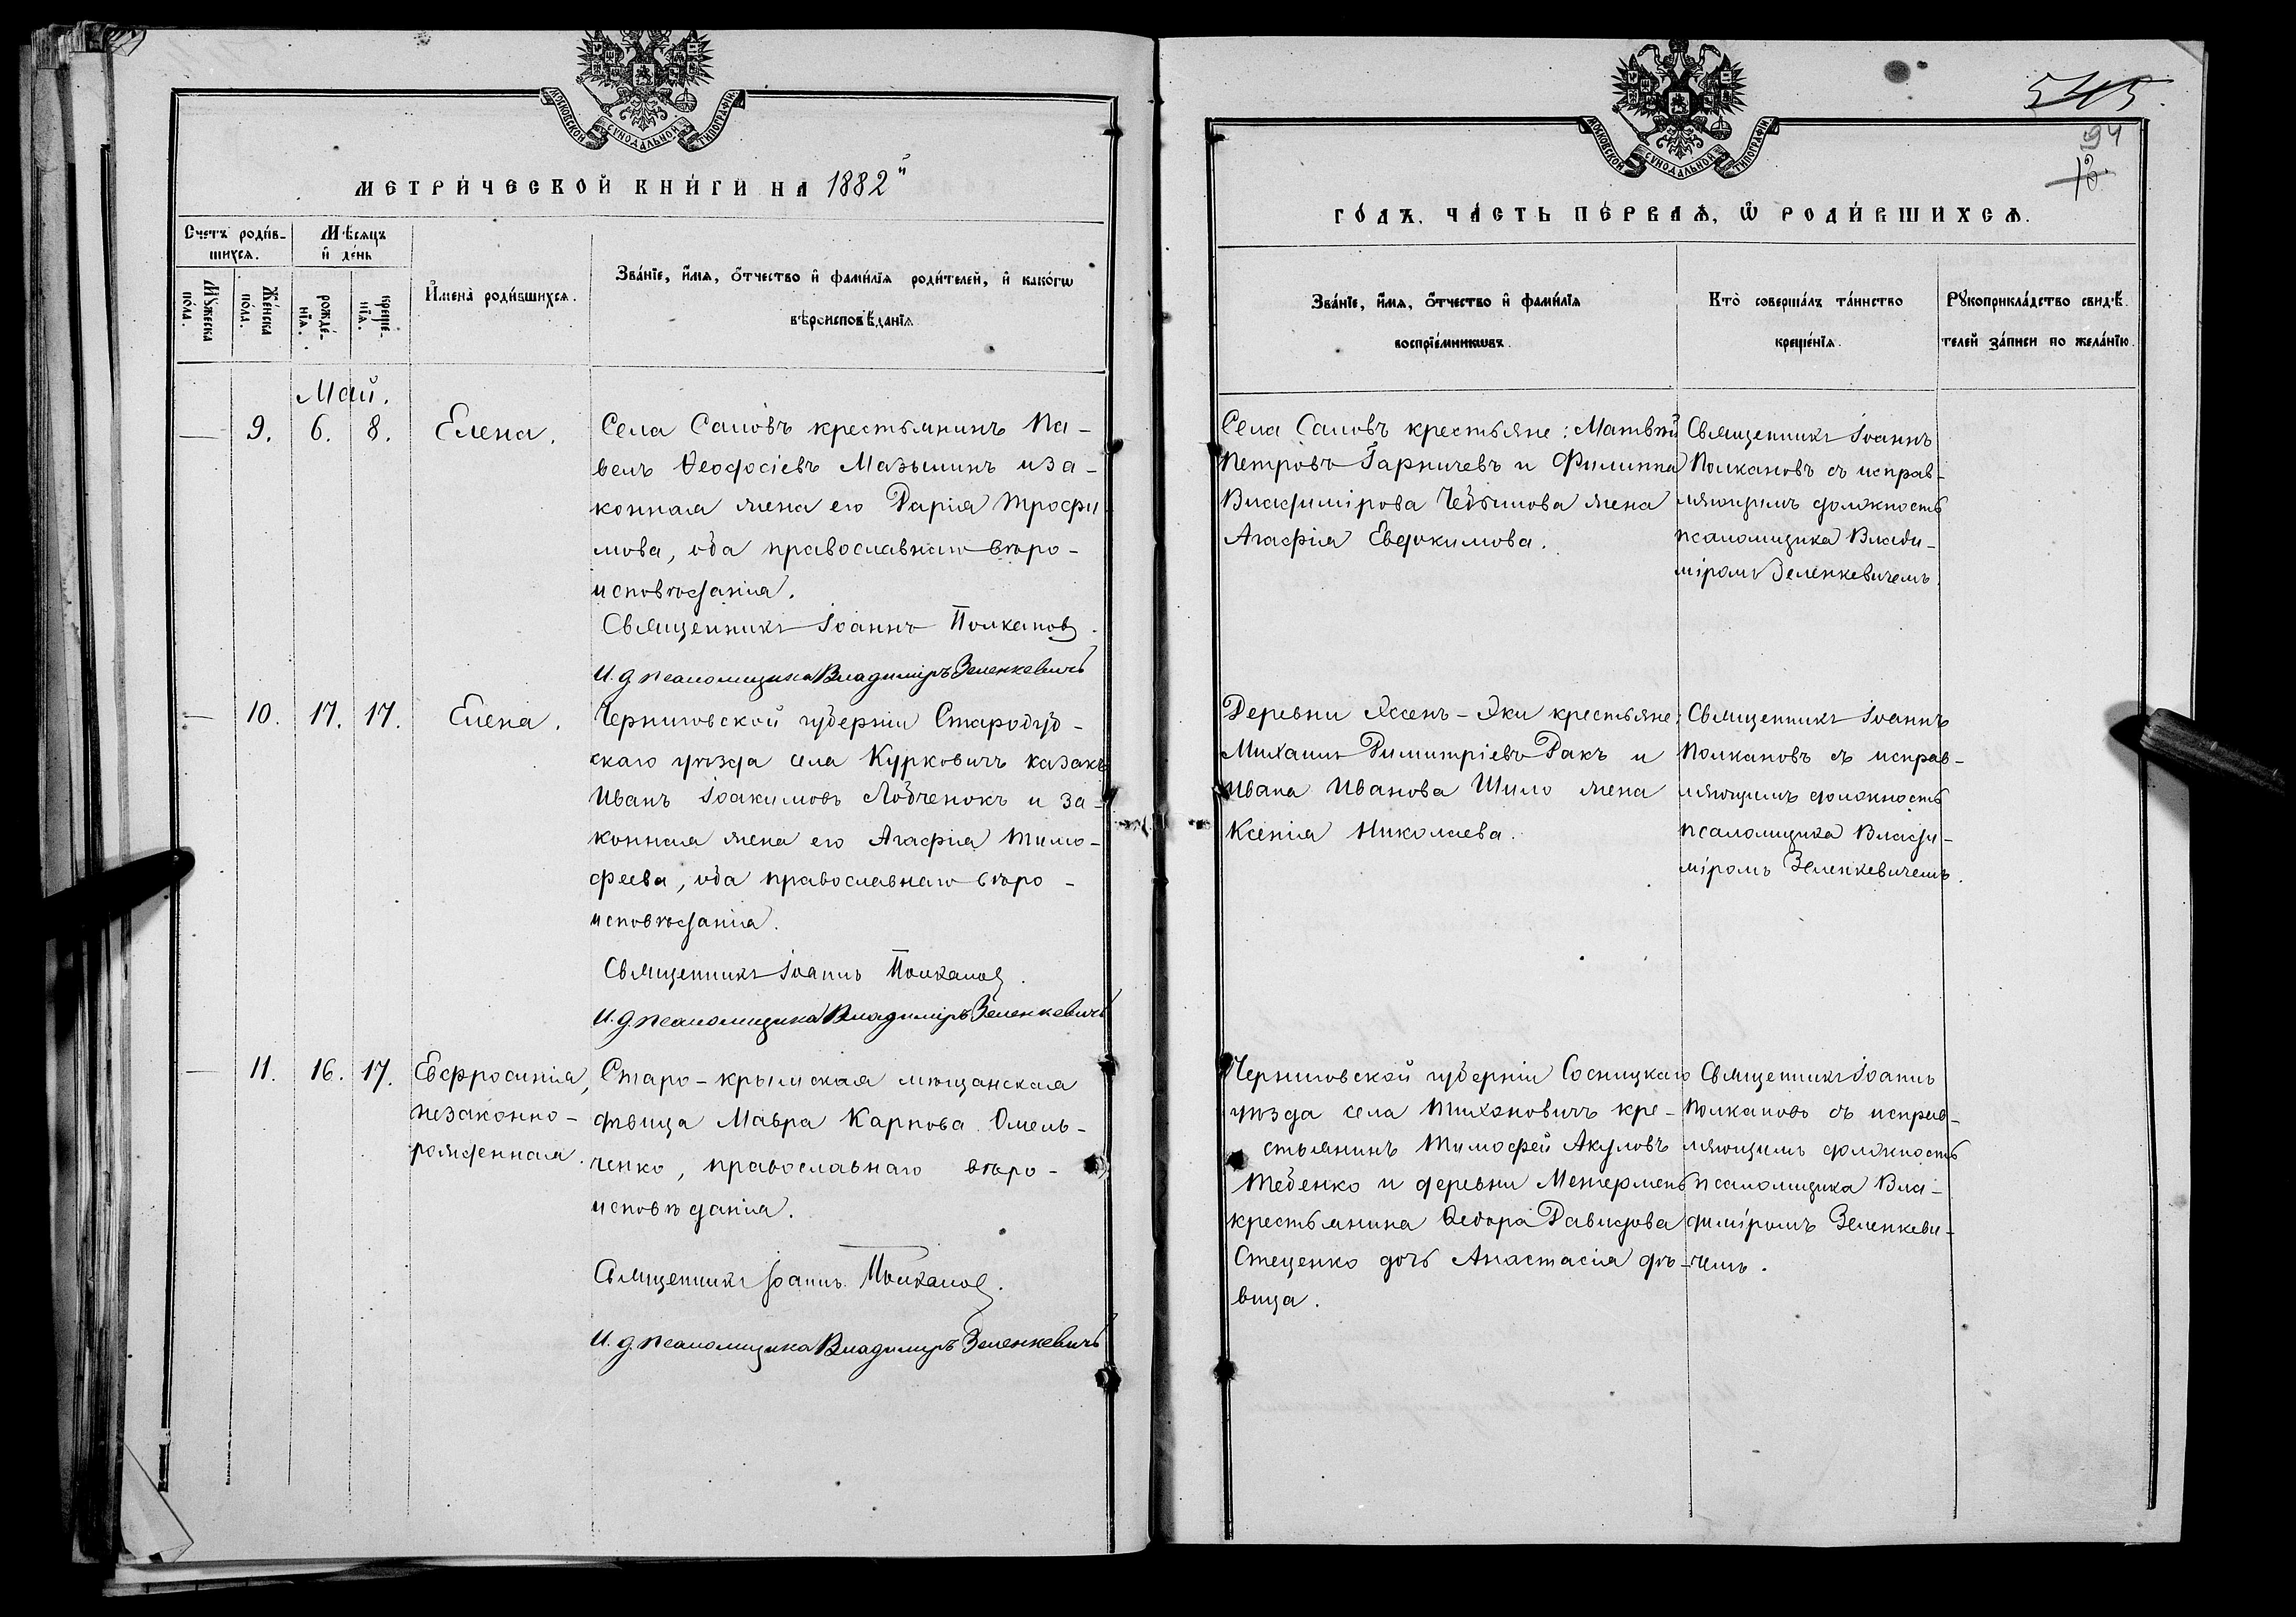 МОСКОВСКОЙ СУНОДАЛЬНОЙ ТИПОГРАФІИ.
МЕТРИ́ЧЕСКОЙ КНИ́ГИ НА 1882й
Счетъ роди́в-
шихся.
Мѣсяцъ
и҆ де́нь
Мꙋ́жеска
по́ла.
Же́нска
по́ла.
рожде́-
нїѧ.
креще́-
нїѧ.
И҆мена̀ роди́вшихсѧ.
Зва́нїе, и҆́мѧ, ѻ҆́тчество и҆ фами́лїѧ роди́телей, и҆ како́гѡ
вѣроисповѣ́данїѧ
Май.
— 9. 6. 8. Елена.
Села Саловъ крестьянинъ Па-
велъ Ѳеодосіевъ Мазыминъ и за-
конная жена его Дарія Трофи-
мова, оба православнаго вѣро-
исповѣданія.
Священникъ Іоаннъ Полкановъ.
И. д. псаломщика Владиміръ Зеленкевичъ
— 10. 17. 17. Елена.
Черниговской губерніи Стародуб-
скаго уѣзда села Курковичъ казакъ
Иванъ Іоакимовъ Лобченокъ и за-
конная жена его Агафія Тимо-
феева, оба православнаго вѣро-
исповѣданія.
Священникъ Іоаннъ Полкановъ.
И. д. псаломщика Владиміръ Зеленкевичъ
— 11. 16. 17. Евфросинія,
незаконно-
рожденная.
Старо-крымская мѣщанская
дѣвица Мавра Карпова Омель-
ченко, православнаго вѣро-
исповѣданія.
Священникъ Іоаннъ Полкановъ.
И. д. псаломщика Владиміръ Зеленкевичъ
545.
94
МОСКОВСКОЙ СУНОДАЛЬНОЙ ТИПОГРАФІИ.
ГО́ДЪ, ЧА́СТЬ ПЕ́РВАѦ, Ѡ҆ РОДИ́ВШИХСѦ.
Зва́нїе, и҆́мѧ, ѻ҆́тчество и҆ фами́лїѧ
воспрїе́мникѡвъ.
Кто̀ соверша́лъ та́инство
креще́нїѧ.
Рꙋкоприкла́дство свидѣ́-
телей за́писи по жела́нїю.
Села Саловъ крестьяне: Матвѣй
Петровъ Гарничевъ и Филиппа
Владимірова жена
Агафія Евдокимова.
Священникъ Іоаннъ
Полкановъ съ исправ-
ляющимъ должность
псаломщика Влади-
міромъ Зеленкевичемъ.
Деревни Яссенъ-Эки крестьяне:
Михаилъ Димитріевъ Ракъ и
Ивана Иванова Шило жена
Ксенія Николаева.
Священникъ Іоаннъ
Полкановъ съ исправ-
ляющимъ должность
псаломщика Влади-
міромъ Зеленкевичемъ.
Черниговской губерніи Сосницкаго
уѣзда села Тихоновичъ кре-
стьянинъ Тимофей Акуловъ
Тебенко и деревни
крестьянина Ѳедора Давидова
Стеценко дочь Анастасія дѣ-
вица.
Священникъ Іоаннъ
Полкановъ съ исправ-
ляющимъ должность
псаломщика Вла-
диміромъ Зеленкеви-
чемъ.